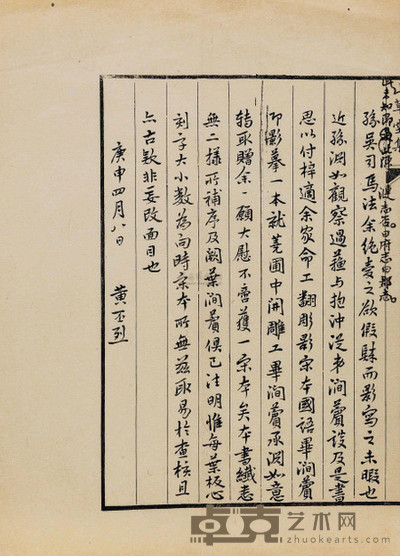 孫吳司馬法余絶愛之欲假歸而影寫之未暇也
近孫淵如觀察過蘓与抱沖従弟澗薲談及是書
思以付梓適余家命工翻彫影宋本國語畢澗薲
即影摹一本就蕘圃中開雕工畢澗薲承淵如意
轉取贈余一顧大慰不啻獲一宋本矣本書纖悉
無二樣所補序及闕葉澗薲俱已注明惟每葉板心
刻字大小數為向時宋本所無茲取易於查核且
亦古欵非妄改面目也
庚申四月八日 黃丕烈
卓克艺术网
www.zhuokearts.com